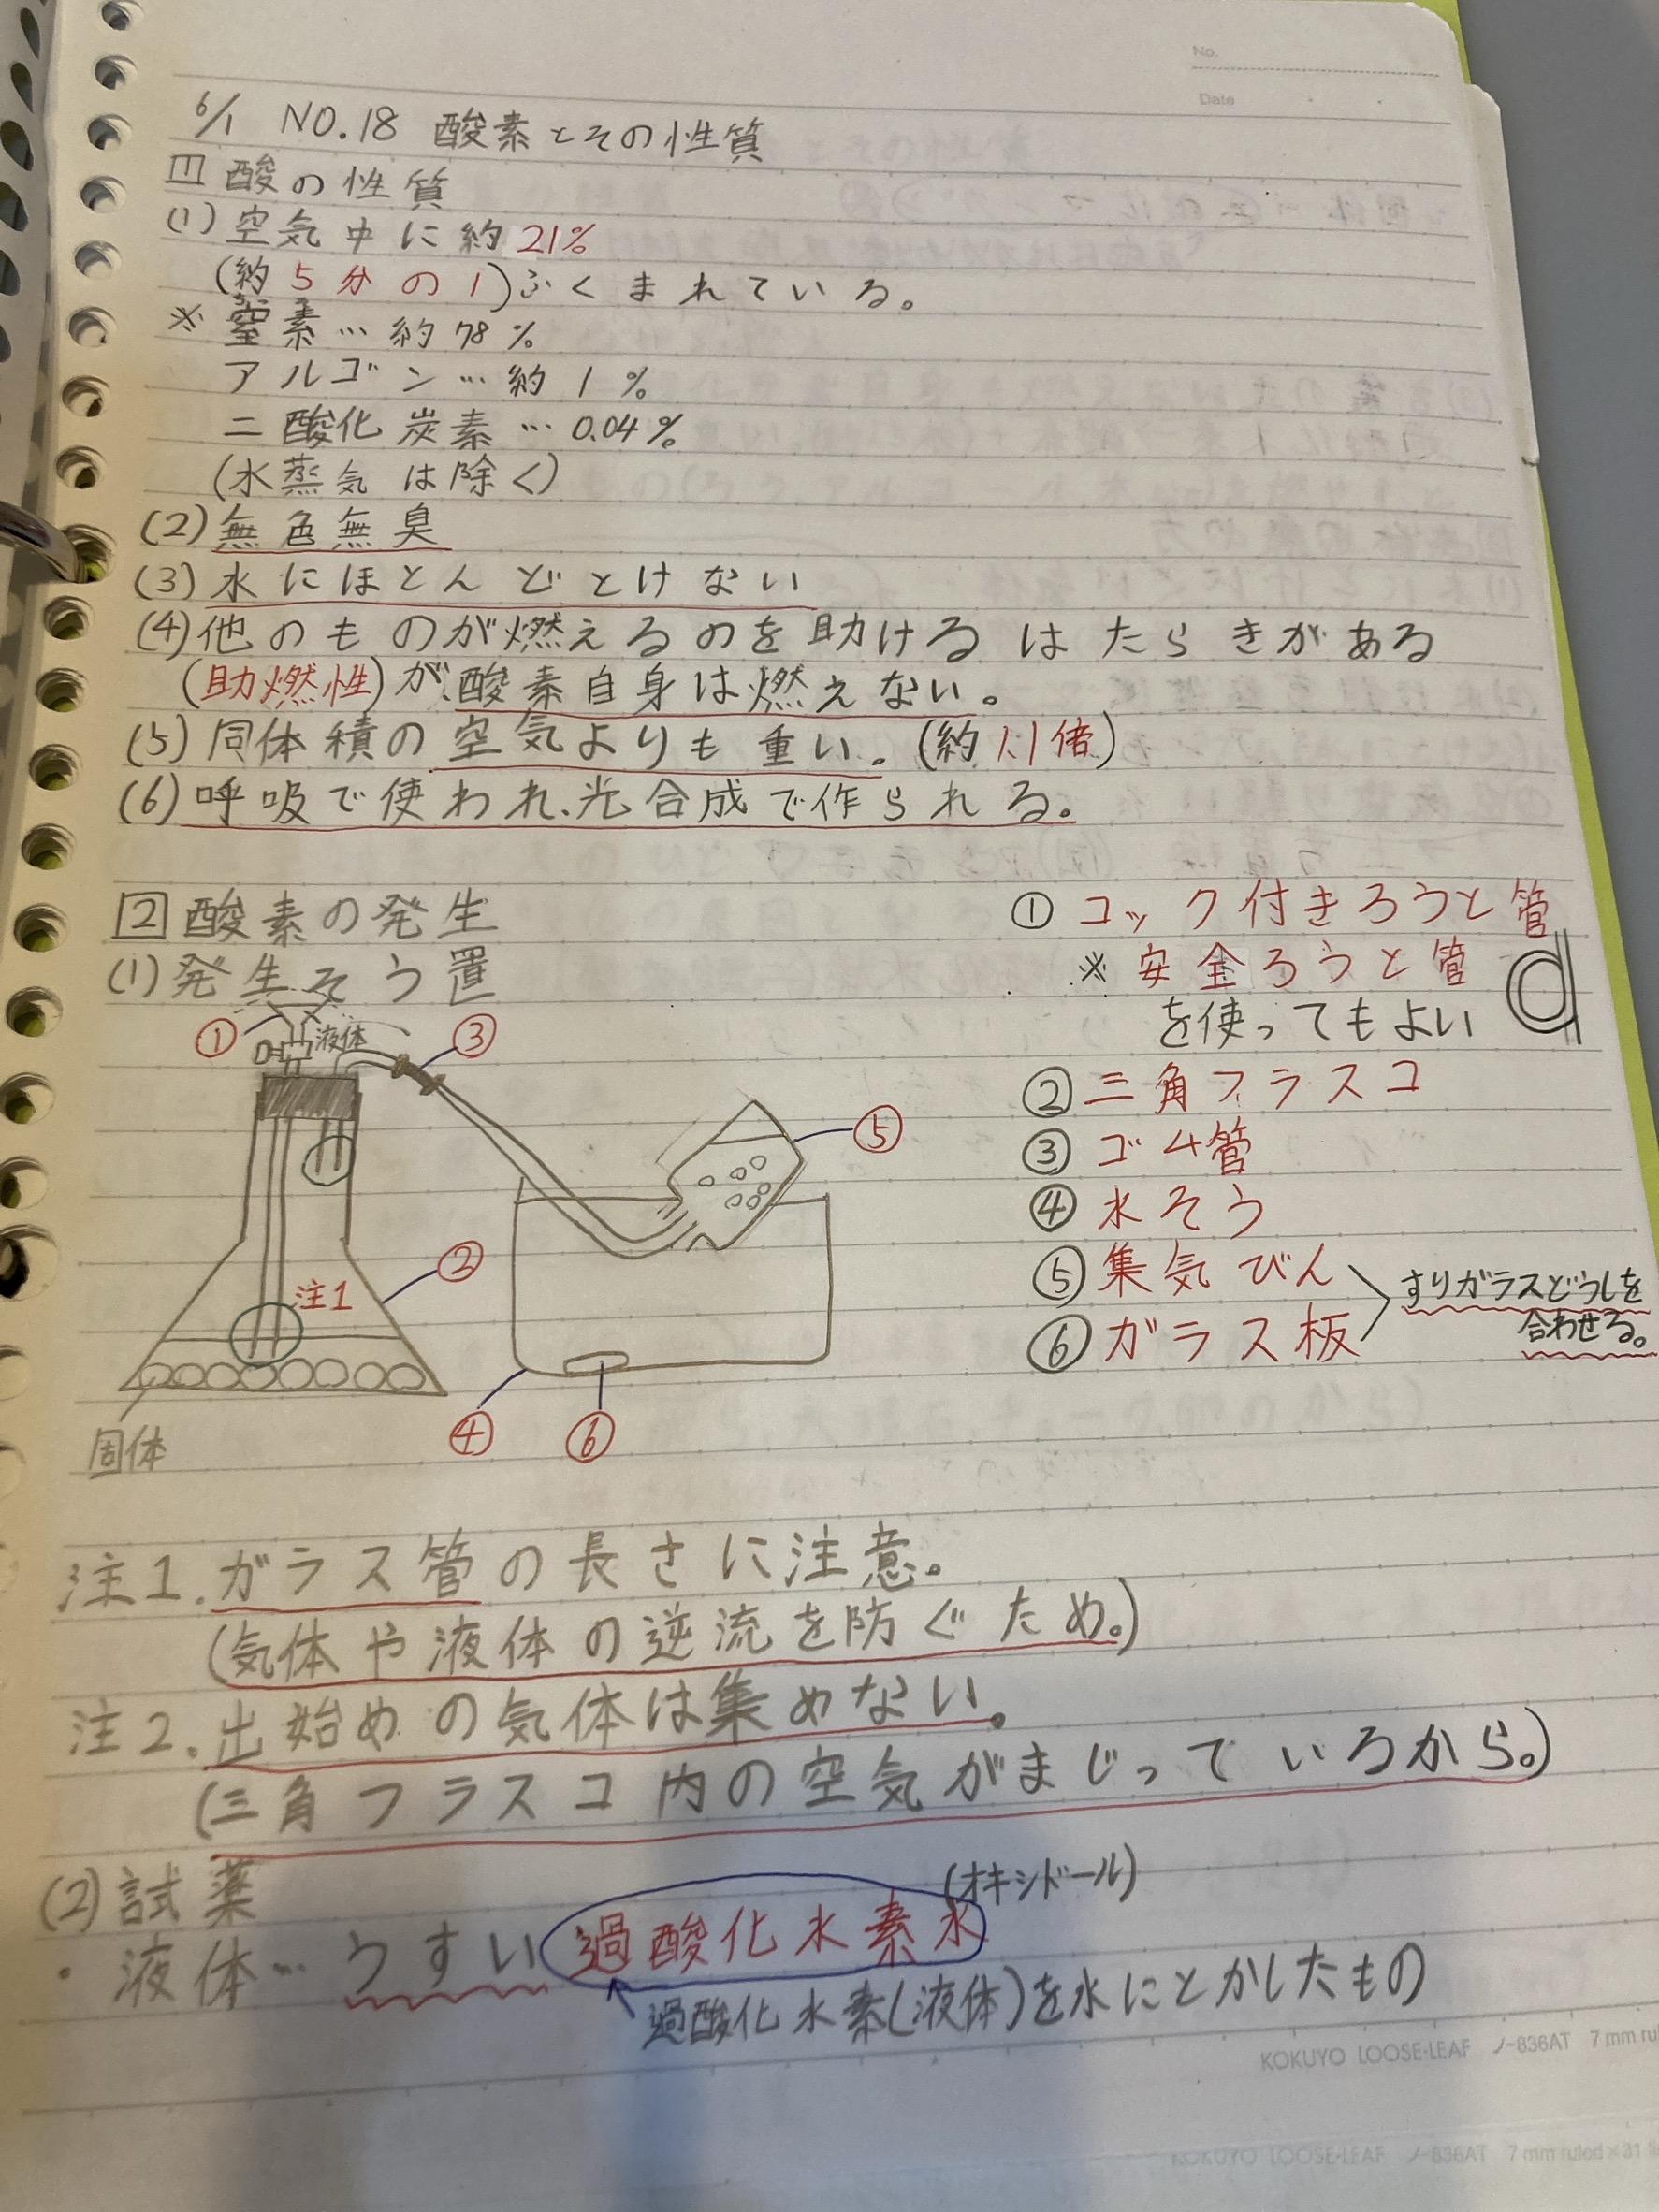 No.
Date
6/1 NO.18 酸素とその性質
1 酸の性質
(1)空気中に約21%
(約5分の1)ふくまれている。
※窒素…約78%
アルゴン…約1%
二酸化炭素…0.04%
(水蒸気は除く)
(2)無色無臭
(3)水にほとんどとけない
(4)他のものが燃えるのを助けるはたらきがある
(助燃性)が酸素自身は燃えない。
(5)同体積の空気よりも重い。(約1.1倍)
(6)呼吸で使われ、光合成で作られる。
2 酸素の発生
(1)発生そう置
① 液体 ③
⑤
②
注1
④ ⑥
固体
①コック付きろうと管
※安全ろうと管
を使ってもよい
②三角フラスコ
③ゴム管
④水そう
⑤集気びん
⑥ガラス板
すりガラスどうしを
合わせる。
注1.ガラス管の長さに注意。
(気体や液体の逆流を防ぐため。)
注2.出始めの気体は集めない。
(三角フラスコ内の空気がまじっているから。)
(2)試薬
(オキシドール)
・液体…うすい過酸化水素水
過酸化水素(液体)を水にとかしたもの
KOKUYO LOOSE-LEAF ノ-836AT 7 mm ru
KOKUYO LOOSE-LEAF ノ-836AT 7 mm ruled×31